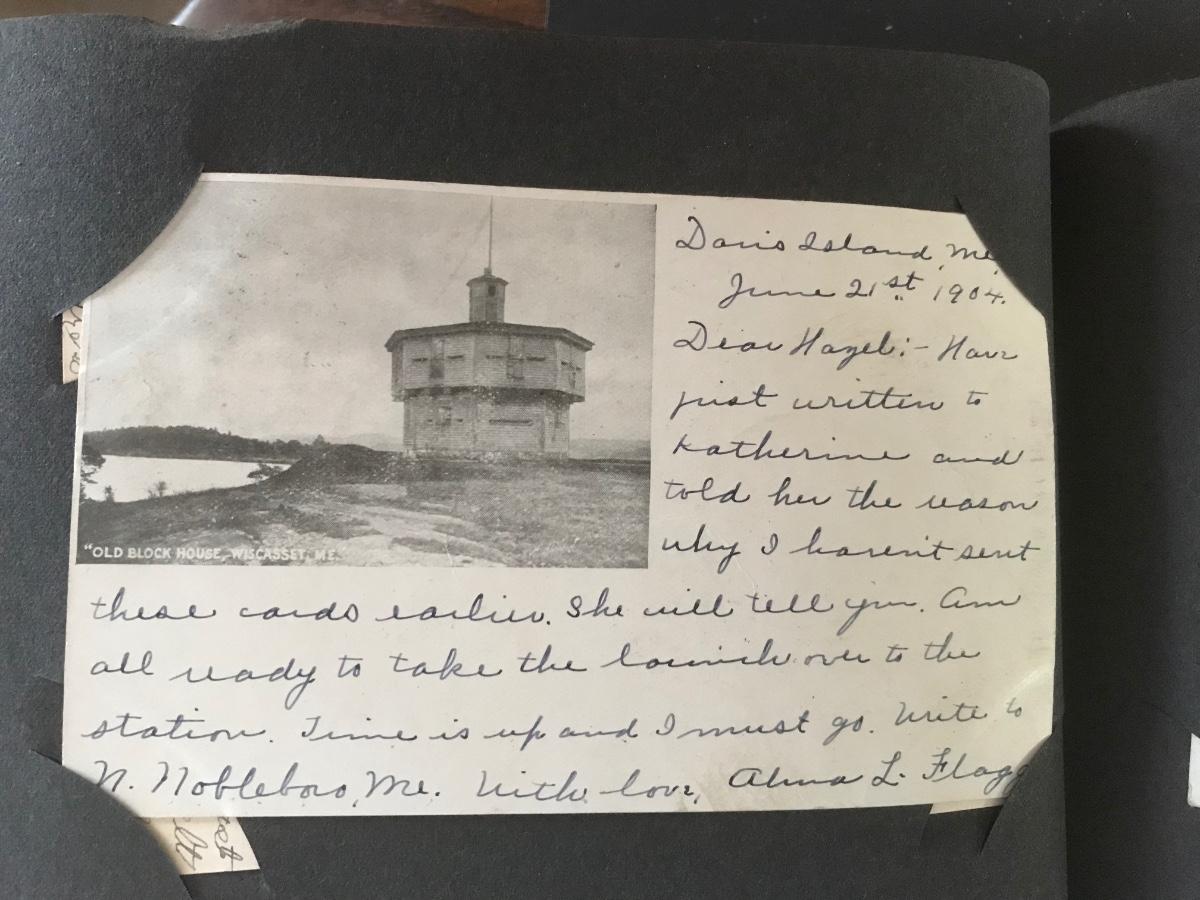 "OLD BLOCK HOUSE, WISCASSET, ME.
Davis Island, Me.
June 21st, 1904.
Dear Hazel:- Have
just written to
Katherine and
told her the reason
why I haven't sent
these cards earlier. She will tell you. Am
all ready to take the launch over to the
station. Time is up and I must go. Write to
N. Nobleboro, Me. With love, Alma L. Flagg